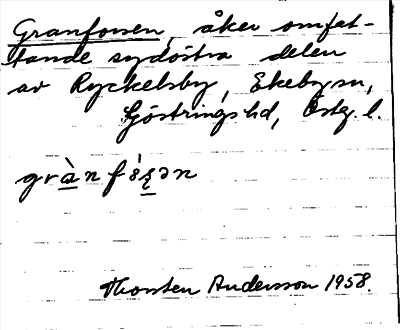 Granforsen, åker omfat-
tande sydöstra delen
av Ryckelsby, Ekeby sn,
Göstringshd, Östg. l.
grànfórşən
Thorsten Andersson 1958.